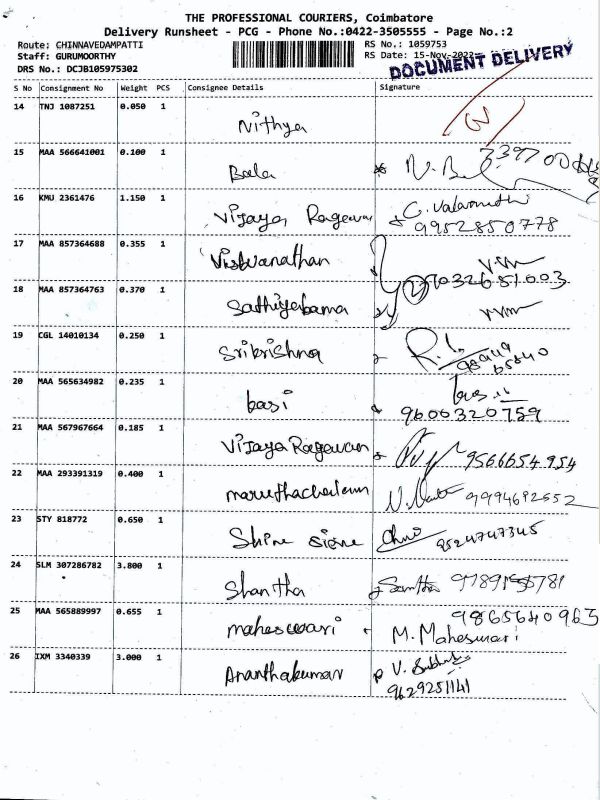 THE PROFESSIONAL COURIERS, Coimbatore
Delivery Runsheet - PCG - Phone No.:0422-3505555 - Page No.:2
Route: CHINNAVEDAMPATTI RS No.: 1059753
Staff: GURUMOORTHY RS Date: 15-Nov-2022
DRS No.: DCJB105975302 DOCUMENT DELIVERY
S No Consignment No Weight PCS Consignee Details Signature
14 TNJ 1087251 0.050 1
Nithya
15 MAA 566641001 0.100 1
Bala
16 KMU 2361476 1.150 1
Vijaya Ragavan
9952850778
17 MAA 857364688 0.355 1
Viswanathan
18 MAA 857364763 0.370 1
Sathiyabama
19 CGL 14010134 0.250 1
Srikrishna
20 MAA 565634982 0.235 1
basi
9600320759
21 MAA 567967664 0.185 1
Vijaya Ragavan 9566654954
22 MAA 293391319 0.400 1
9994692552
23 STY 818772 0.650 1
Shine 9524747345
24 SLM 307286782 3.800 1
Shantha Santha
25 MAA 565889997 0.655 1
9865640963
maheswari M. Maheswari
26 IXM 3340339 3.000 1
Ananthakumar
9629251141